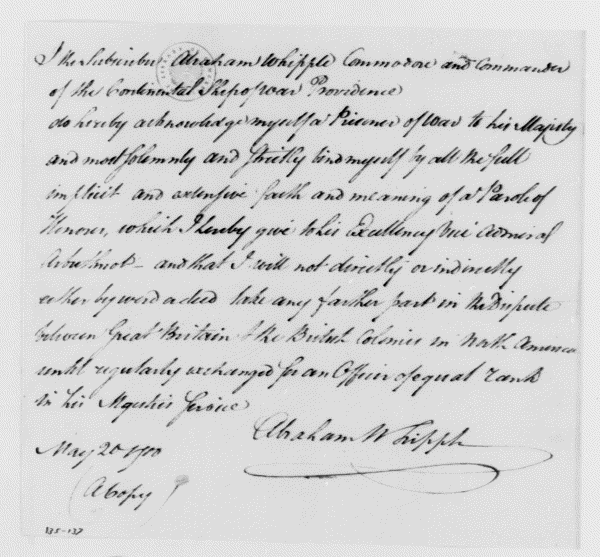 I the Subscriber Abraham Whipple Commodore and Commander
of the Continental Ship of war Providence
do hereby acknowledge myself a Prisoner of War to his Majesty
and most Solemnly and Strictly bind myself by all the full
implicit and extensive faith and meaning of a Parole of
Honour, which I hereby give to his Excellency Vice Admiral
Arbuthnot – and that I will not directly or indirectly
either by word or deed take any farther part in the Dispute
between Great Britain & the British Colonies in North America
until regularly exchanged for an Officer of equal rank
in his Majesties Service
Abraham Whipple
May 20 1780
(A Copy)
135-137